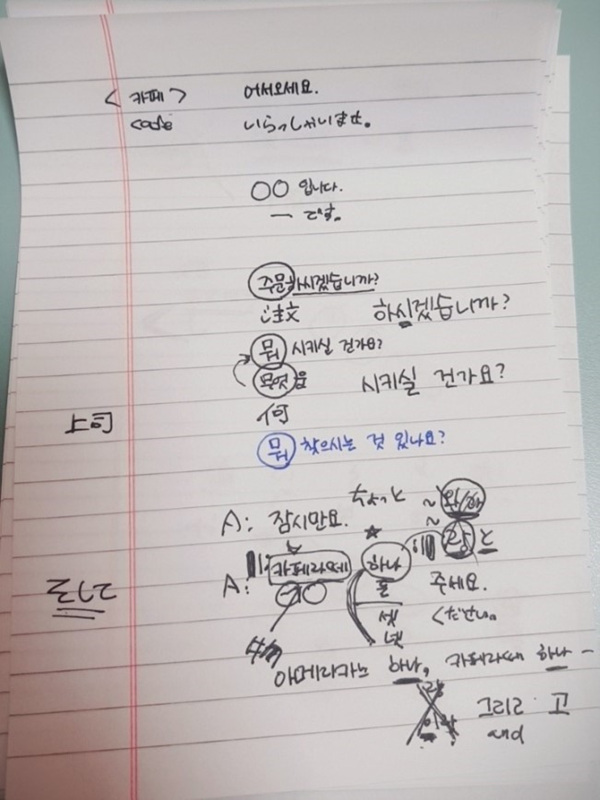 <카페> 어서오세요.
cafe いらっしゃいませ。
○○ 입니다.
ー です。
주문하시겠습니까?
注文 하시겠습니까?
뭐 시키실 건가요?
무엇을 시키실 건가요?
何
뭐 찾으시는 것 있나요?
A: 잠시만요. ちょっと ~와/과
~랑 と
A: 카페라떼 하나 주세요.
둘
셋 ください。
넷
아메리카노 하나, 카페라떼 하나 ー
그리고
and